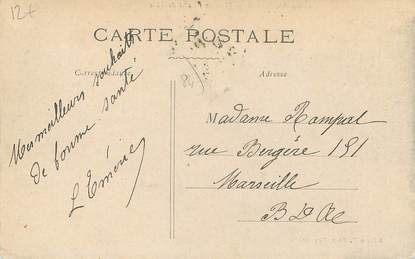 12€
CARTE POSTALE
Correspondance
Adresse
84
Mes meilleurs souhaits
de bonne santé
L Eméric
Madame Rampal
rue Bergère 191
Marseille
B D R